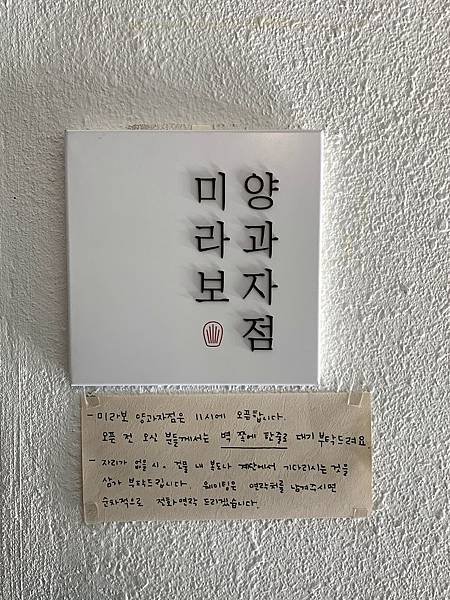 양과자점
미라보
- 미라보 양과자점은 11시에 오픈합니다.
오픈 전 오신 분들께서는 벽 쪽에 한줄로 대기 부탁드려요
- 자리가 없을 시, 건물 내 복도나 계단에서 기다리시는 것을
삼가 부탁드립니다. 웨이팅은 연락처를 남겨주시면
순차적으로 전화 연락 드리겠습니다.